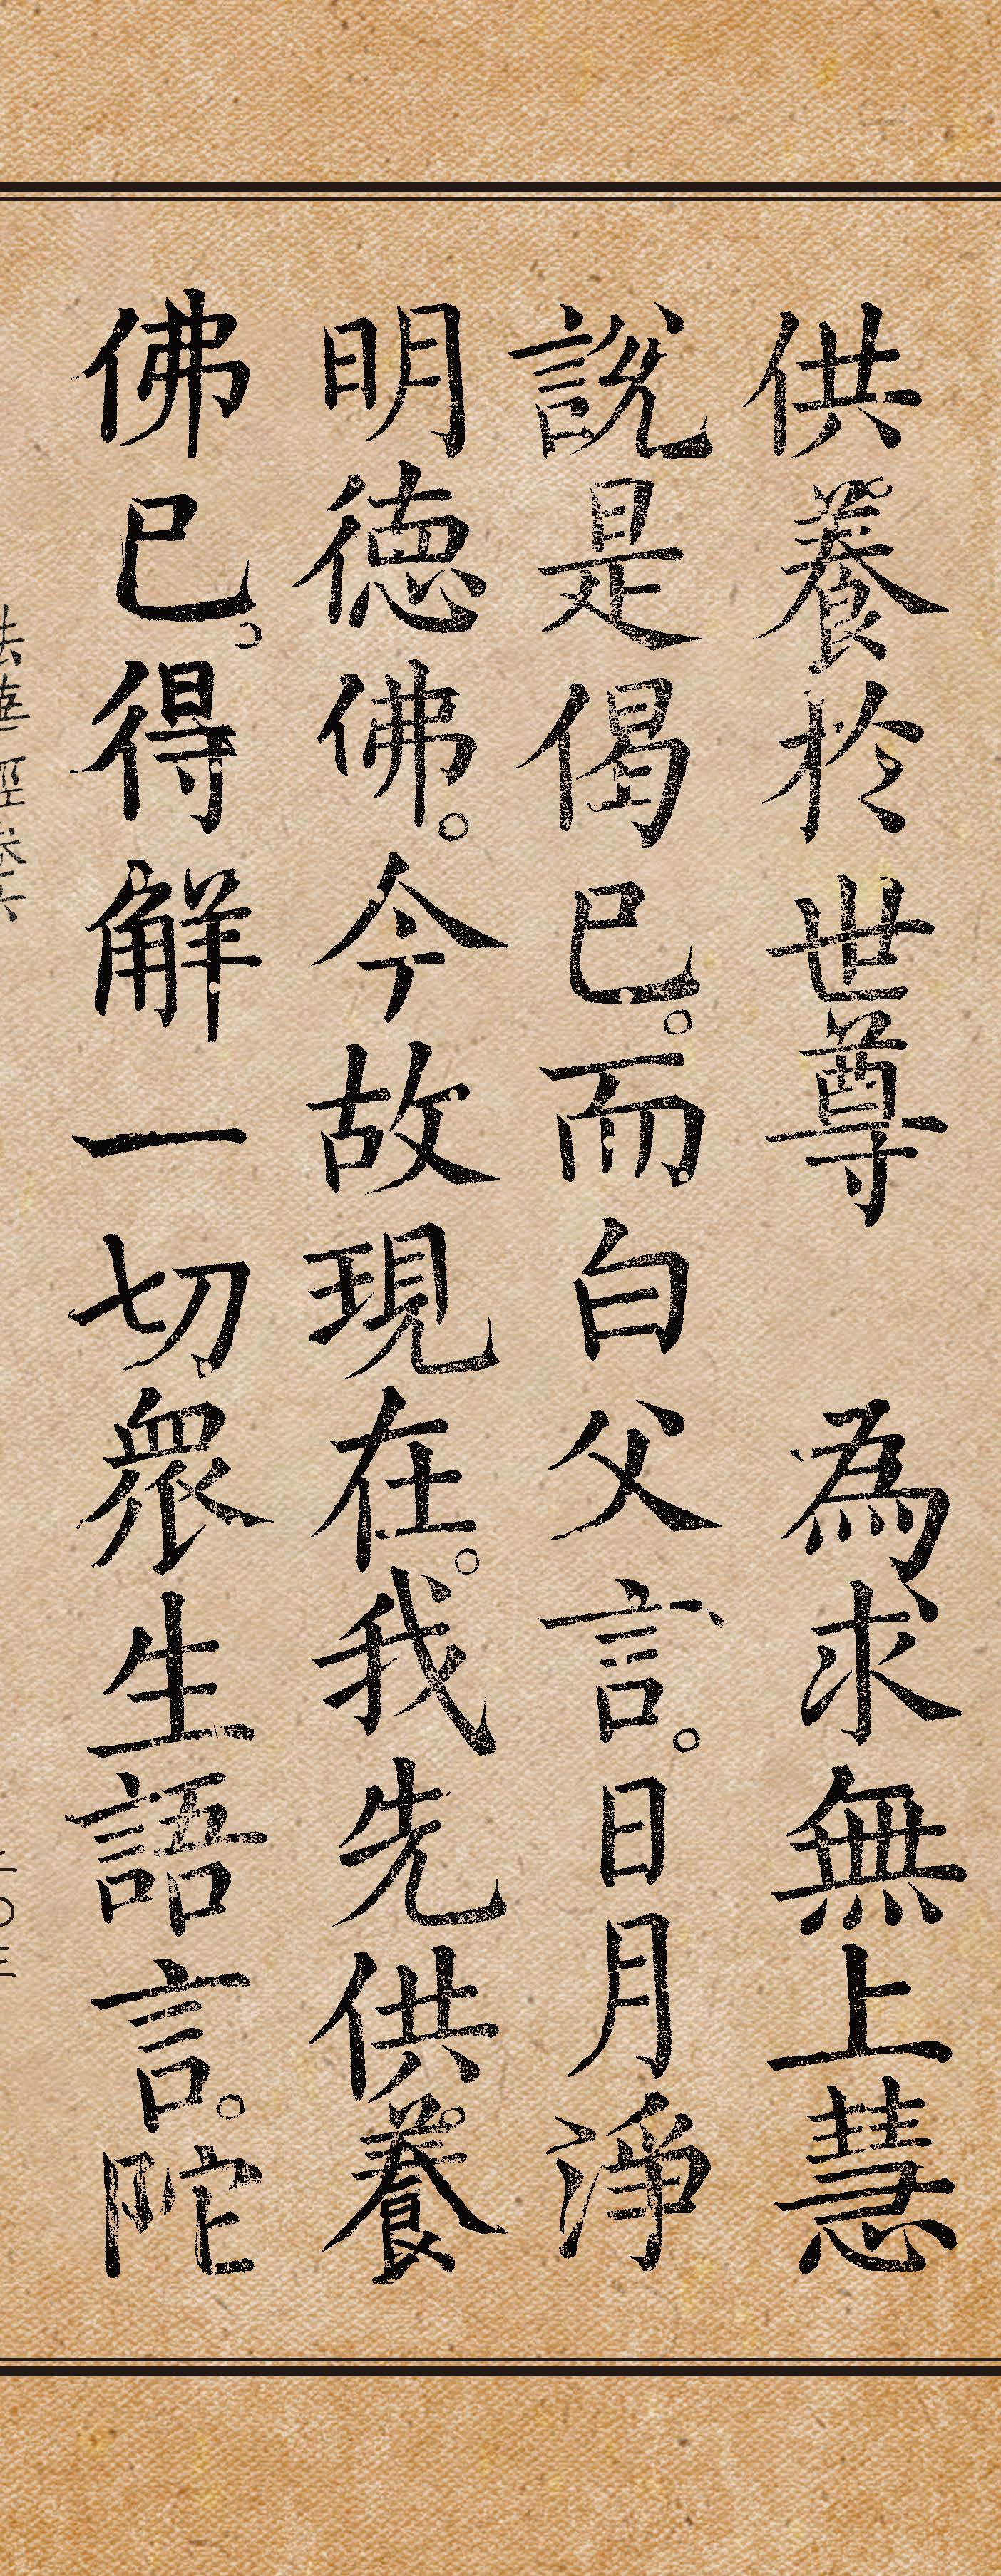 供養於世尊　為求無上慧
說是偈已。而白父言。日月淨
明德佛。今故現在。我先供養
佛已。得解一切衆生語言。陀
法華經卷六
二〇三